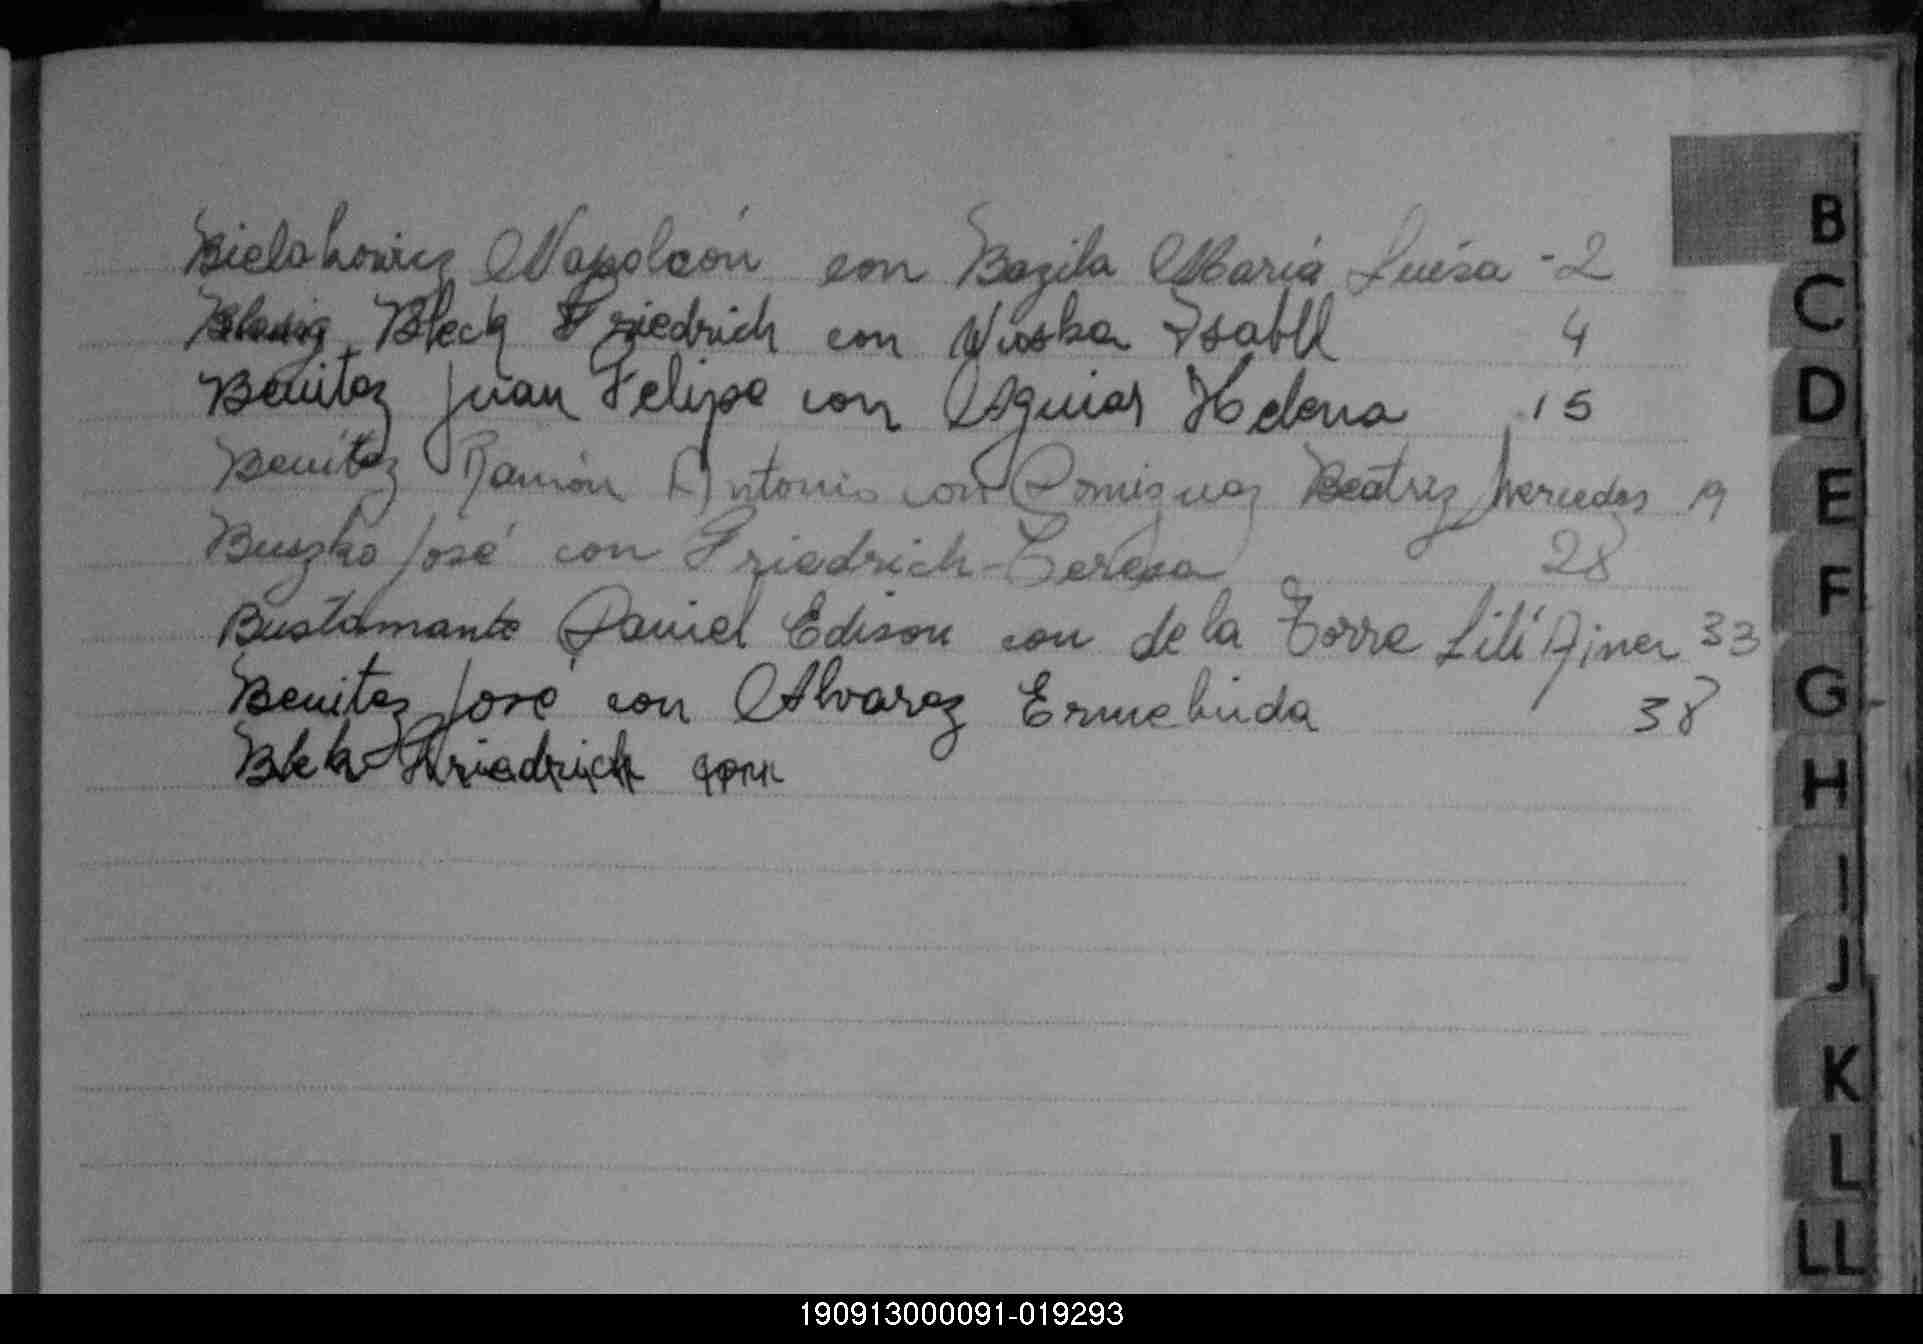 Bielakowicz Napoleón con Bazila María Luisa - 2
Bleck Friedrich con Isabll 4
Benitez Juan Felipe con Aguiar Helena 15
Benítez Ramón Antonio con Beatriz Mercedes 19
Buszko José con Friedrich - Teresa 28
Bustamante Daniel Edison con de la Torre Lilí 33
Benitez José con Alvarez 38
Friedrich con
B
C
D
E
F
G
H
I
J
K
L
LL
190913000091-019293